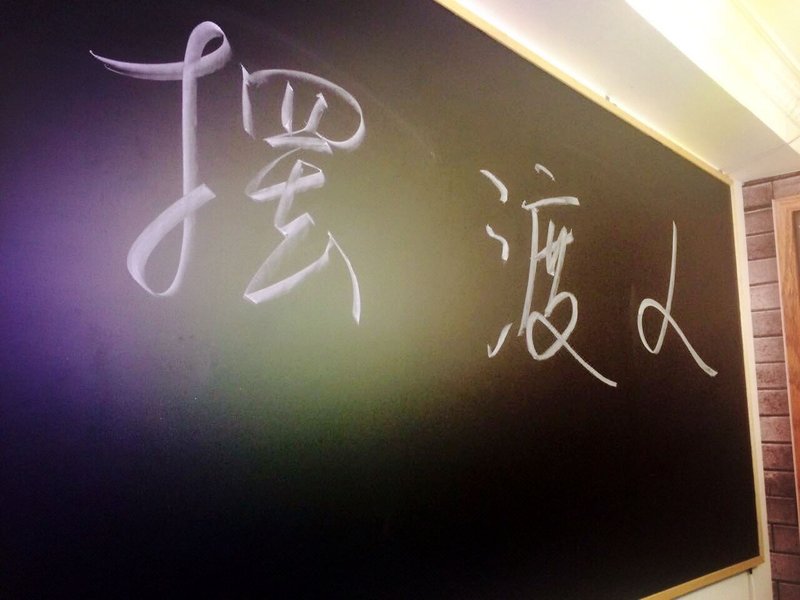 摆渡人